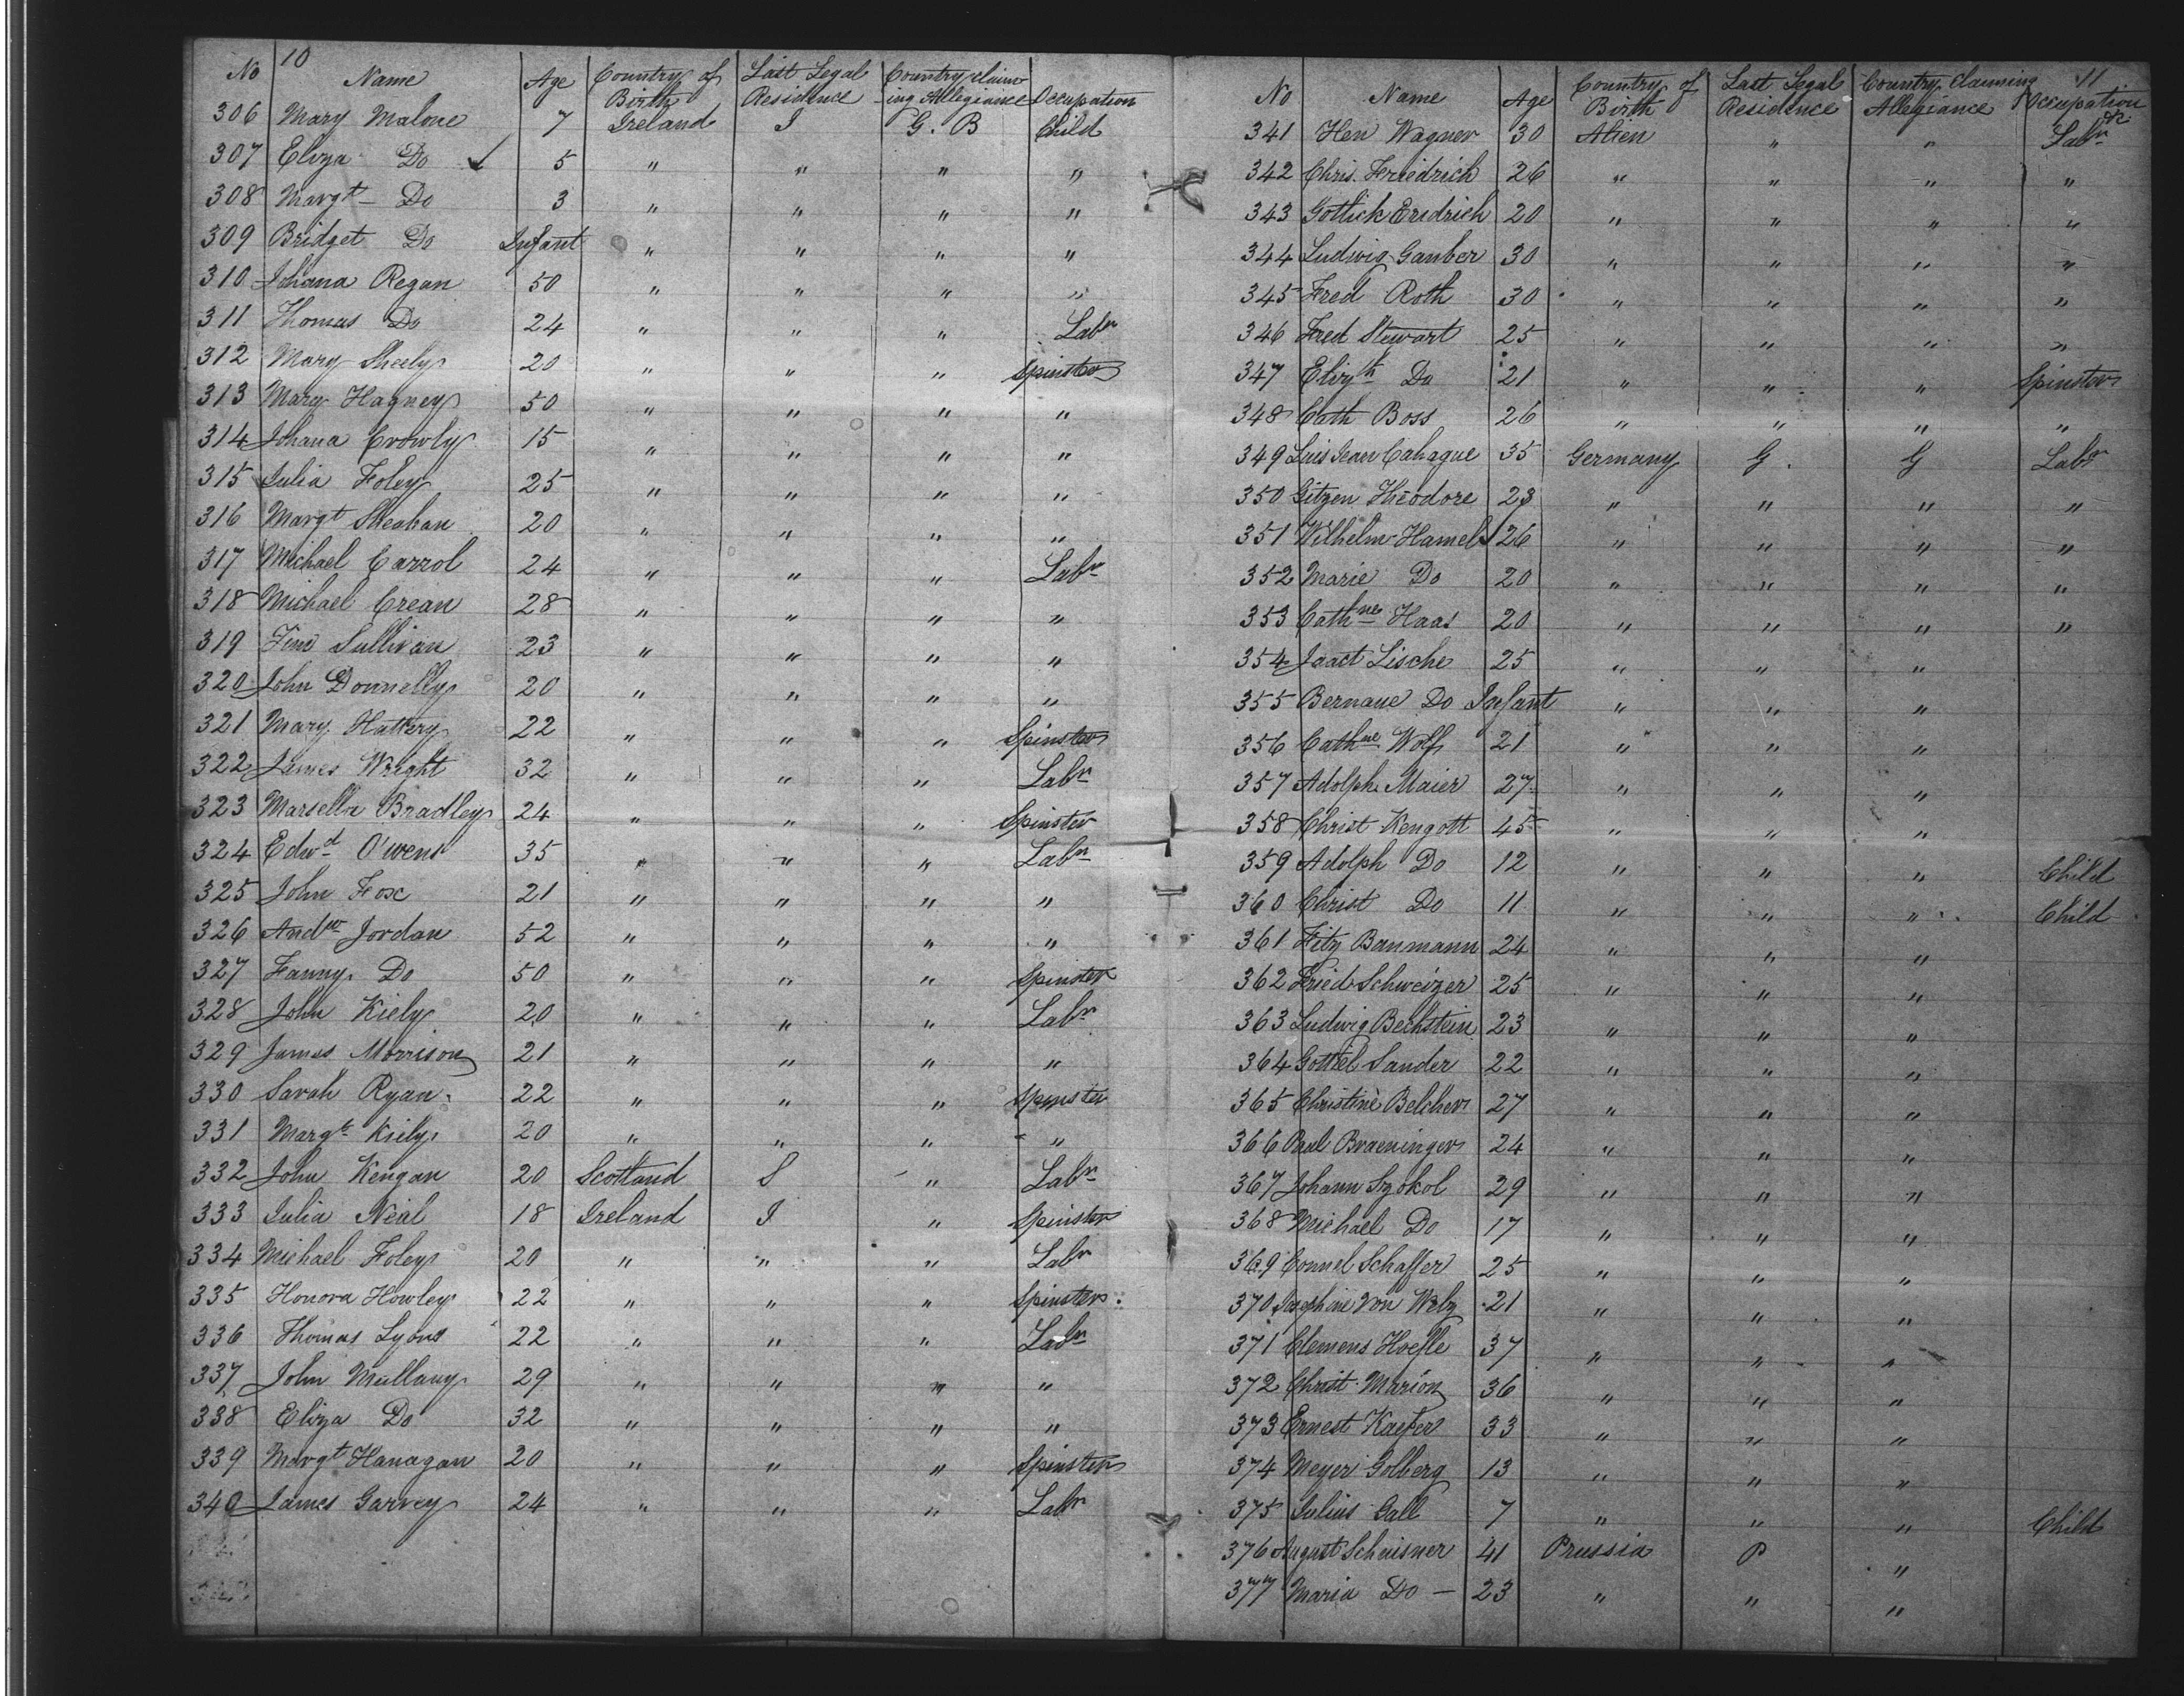 10
No Name Age Country of Birth Last Legal Residence Country claiming Allegiance Occupation
306 Mary Malone 7 Ireland I G. B Child
307 Eliza Do 5 " " " "
308 Margt Do 3 " " " "
309 Bridget Do Infant " " " "
310 Johana Regan 50 " " " "
311 Thomas Do 24 " " " Labr
312 Mary Sheely 20 " " " Spinster
313 Mary Hagney 50 " " " "
314 Johana Crowly 15 " " " "
315 Julia Foley 25 " " " "
316 Margt Sheahan 20 " " " "
317 Michael Carrol 24 " " " Labr
318 Michael Crean 28 " " " "
319 Tim Sullivan 23 " " " "
320 John Donnelly 20 " " " "
321 Mary Hattery 22 " " " Spinster
322 James Wright 32 " " " Labr
323 Marsella Bradley 24 " " " Spinster
324 Edwd O'wens 35 " " " Labr
325 John Fox 21 " " " "
326 Andw Jordan 52 " " " "
327 Fanny Do 50 " " " Spinster
328 John Kiely 20 " " " Labr
329 James Morrison 21 " " " "
330 Sarah Ryan 22 " " " Spinster
331 Margt Kiely 20 " " " "
332 John Kengan 20 Scotland S " Labr
333 Julia Neal 18 Ireland I " Spinster
334 Michael Foley 20 " " " Labr
335 Honora Howley 22 " " " Spinster
336 Thomas Lyons 22 " " " Labr
337 John Mullany 29 " " " "
338 Eliza Do 32 " " " "
339 Margt Hanagan 20 " " " Spinster
340 James Garvey 24 " " " Labr
11
No Name Age Country of Birth Last Legal Residence Country Claiming Allegiance Occupation
341 Hen Wagner 30 Alien " " Labr
342 Chris. Friedrich 26 " " " "
343 Gotlick Eridrich 20 " " " "
344 Ludwig Ganber 30 " " " "
345 Fred Roth 30 " " " "
346 Fred Stewart 25 " " " "
347 Elizth Do 21 " " " Spinster
348 Cath Boss 26 " " " "
349 Luis Jean Cahague 35 Germany G G Labr
350 Gitzen Theodore 23 " " " "
351 Wilhelm Hamel 26 " " " "
352 Marie Do 20 " " " "
353 Cathne Haas 20 " " " "
354 Jaact Lische 25 " " "
355 Bernaue Do Infant " " "
356 Cathne Wolf 21 " " "
357 Adolph Maier 27 " " "
358 Christ Kengott 45 " " "
359 Adolph Do 12 " " " Child
360 Christ Do 11 " " " Child
361 Fitz Banmann 24 " " "
362 Fried Schweizer 25 " " "
363 Ludwig Bechstein 23 " " "
364 Gottiel Sander 22 " " "
365 Christine Belcher 27 " " "
366 Paul Braeninger 24 " " "
367 Johann Szokol 29 " " "
368 Michael Do 17 " " "
369 Connel Schaffer 25 " " "
370 Josephine Von Welz 21 " " "
371 Clemens Hoefle 37 " " "
372 Christ Marion 36 " " "
373 Ernest Kaefer 33 " " "
374 Meyer Golberg 13 " " "
375 Julius Gall 7 " " " Child
376 August Scheisner 41 Prussia P "
377 Maria Do — 23 " " "